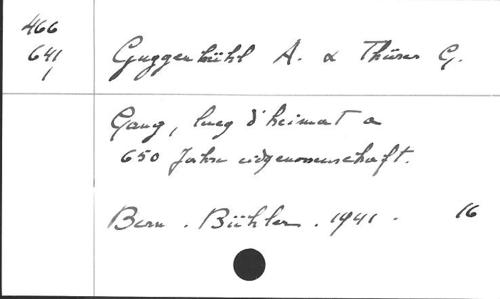 466
641
Guggenbühl A. & Thürer G.
Gang, lueg d'heimat a
650 Jahre eidgenossenschaft.
Bern . Bühler . 1941 . 16